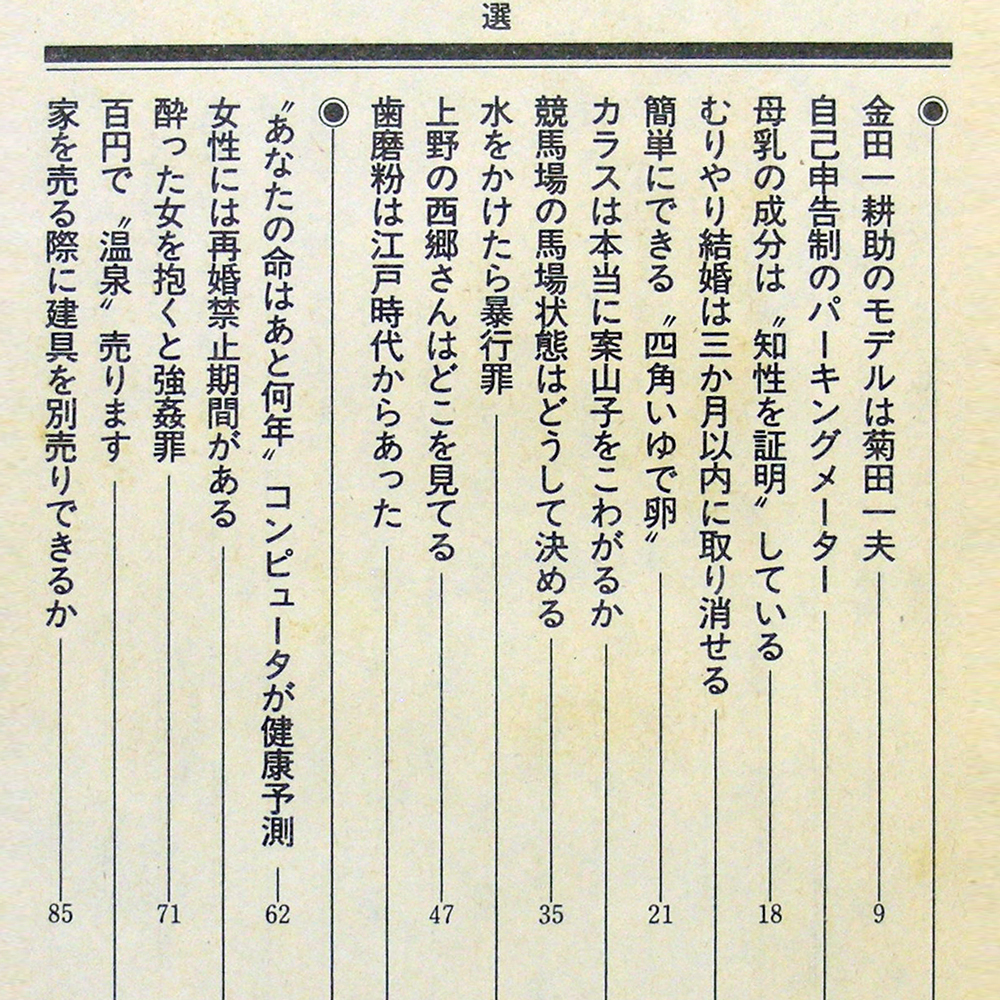 選
金田一耕助のモデルは菊田一夫 9
自己申告制のパーキングメーター
母乳の成分は〝知性を証明〟している 18
むりやり結婚は三か月以内に取り消せる
簡単にできる〝四角いゆで卵〟 21
カラスは本当に案山子をこわがるか
競馬場の馬場状態はどうして決める 35
水をかけたら暴行罪
上野の西郷さんはどこを見てる 47
歯磨粉は江戸時代からあった
〝あなたの命はあと何年〟コンピュータが健康予測 62
女性には再婚禁止期間がある
酔った女を抱くと強姦罪 71
百円で〝温泉〟売ります
家を売る際に建具を別売りできるか 85